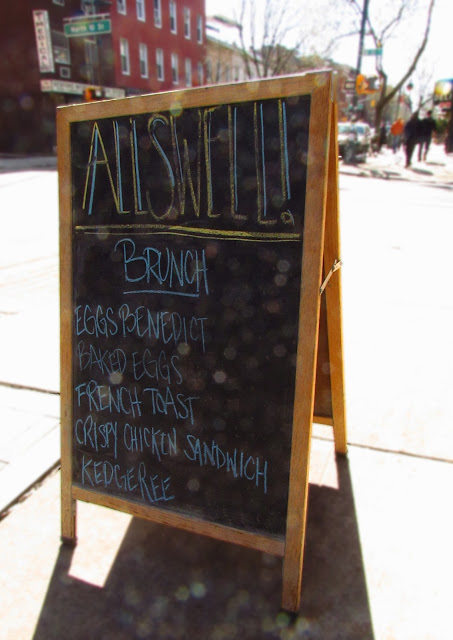 ALLSWELL!
BRUNCH
EGGS BENEDICT
BAKED EGGS
FRENCH TOAST
CRISPY CHICKEN SANDWICH
KEDGEREE